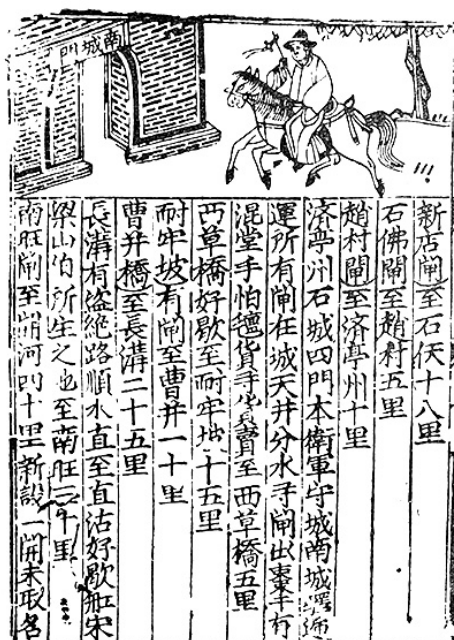 南城門
新店閘至石仸十八里
石佛閘至趙村五里
趙村閘至济亭州十里
济亭州石城四門本衛軍守城南城
運所有閘在城天井分水寺閘出棗羊有
混堂手怕德貨手買賣至西草橋五里
西草橋好歇至耐牢坡十五里
耐牢坡有閘至曹井一十里
曹井橋至長溝二十五里
長溝有盗絶路順水直至直沽好歇舡宋
梁山伯所生之地至南旺三十里
南旺閘至河十里新設一閘未取名